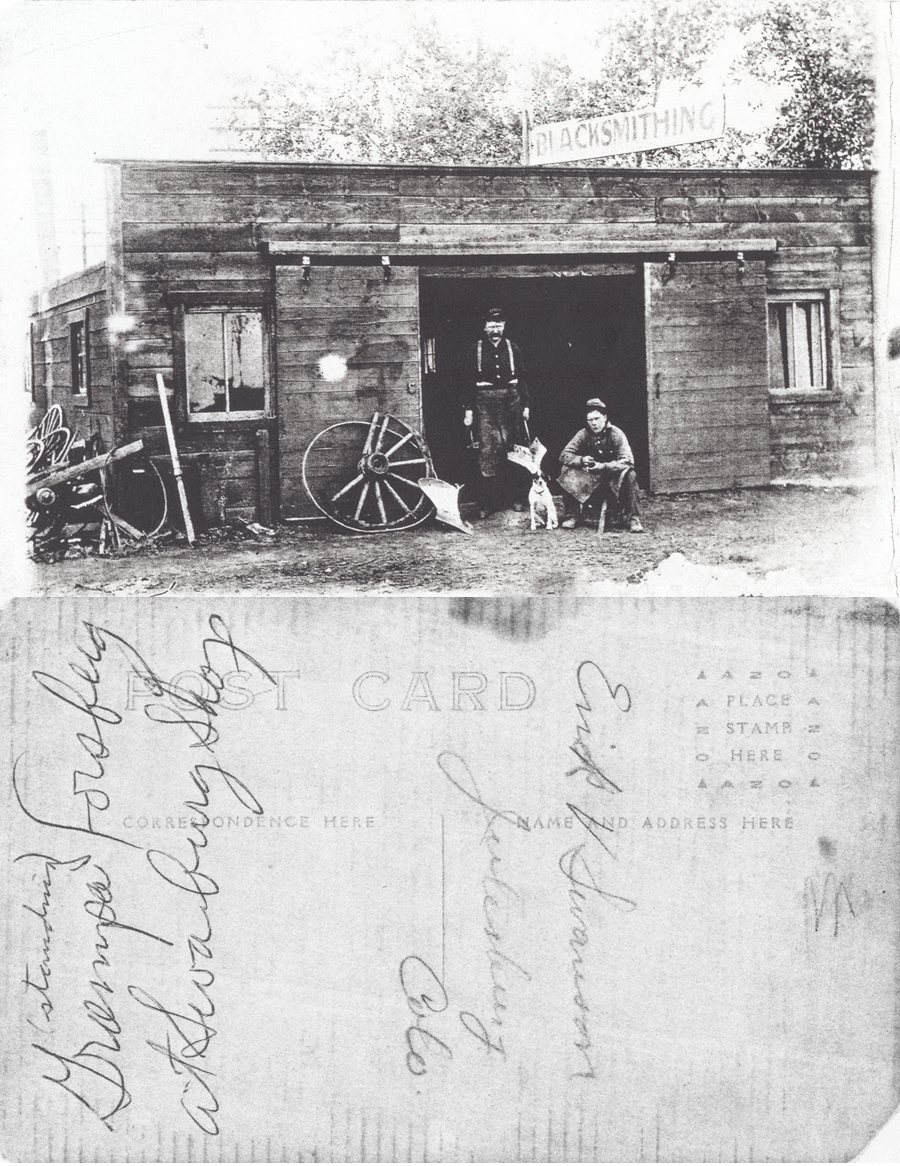 BLACKSMITHING
POST CARD
AZO
PLACE
STAMP
HERE
CORRESPONDENCE HERE
NAME AND ADDRESS HERE
(standing)
Grampa Forsberg
at Swaburg Shop
Erick V Swanson
Julesburg
Colo.